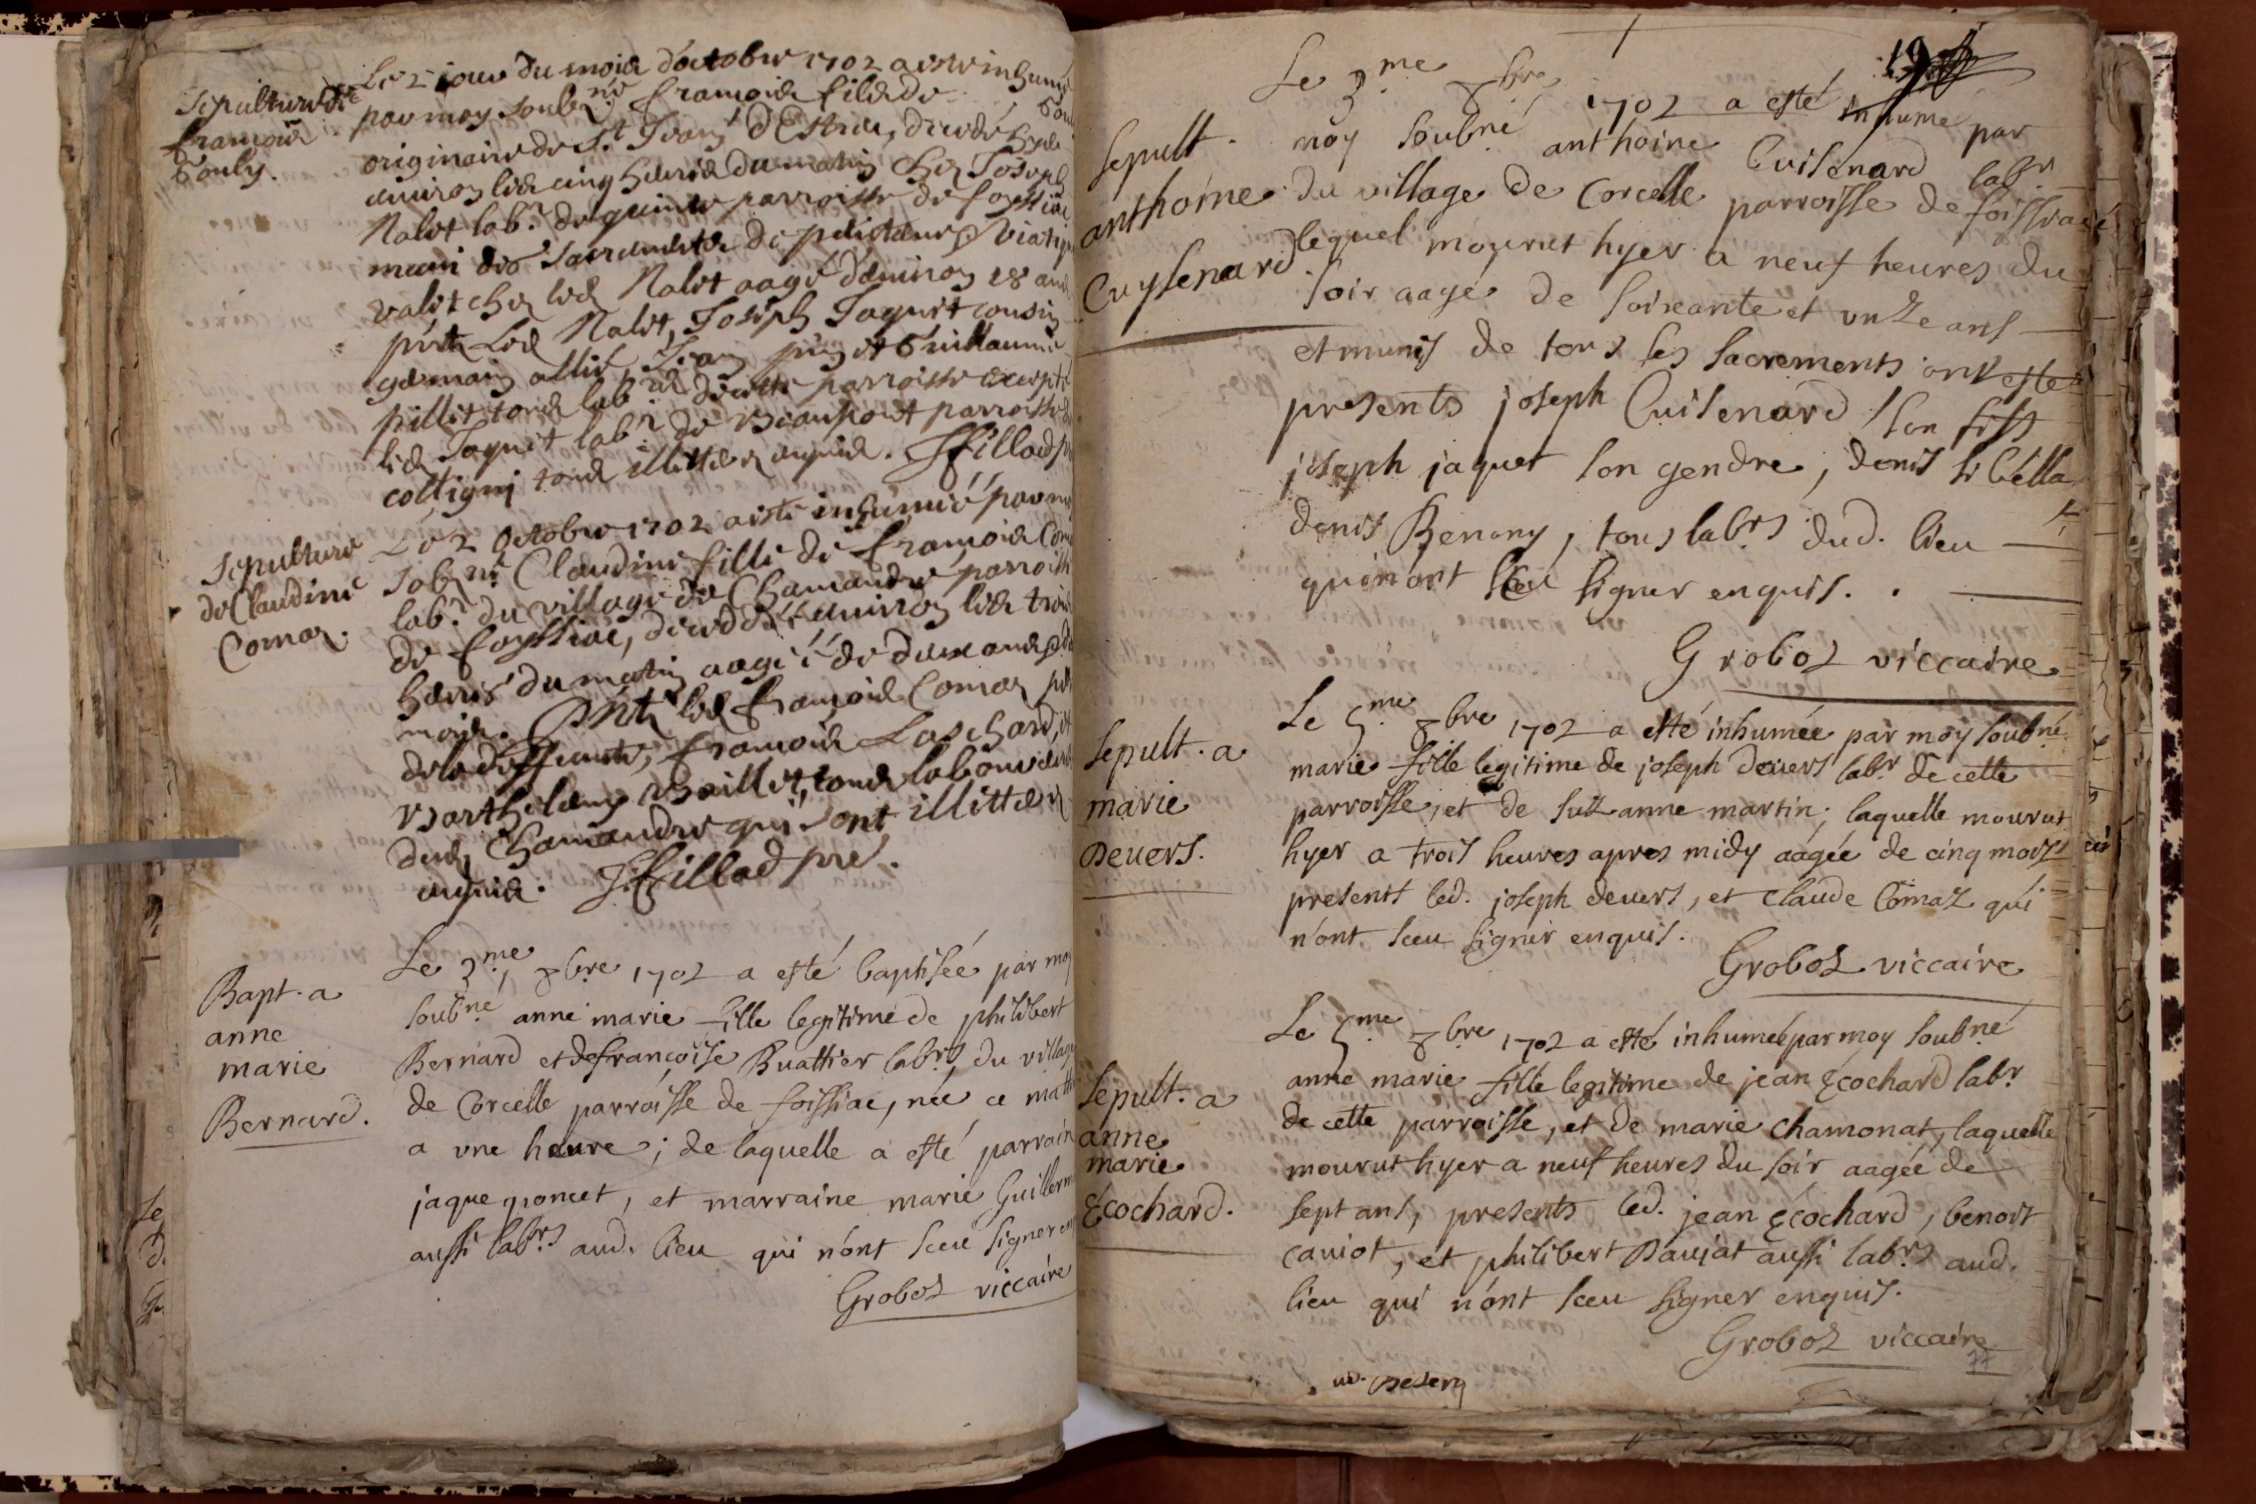 Sepulture de
francois
Pouly.
Le 2 jour du mois d'octobre 1702 a esté inhumé
par moy soubné francois fils de
originaire de St. Jean d'Estreu, decedé hyer
environ les cinq heures du matin chez Joseph
Nalet labr. de parroisse de foyssiac
muni des sacrements de penitence & viatique
valet chez led Nalet aagé d'environ 18 ans
pnts led Nalet, Joseph Jaquet cousin
germain Jean puy et Guillaume
pillit tous labrs de cette parroisse excepté
led Jaquet labr. de Beaupont parroisse
colligny tous illitterez enquis. J. fillod
Sepulture
de Claudine
Comaz.
Le 2 Octobre 1702 a esté inhumée par moy
sobné Claudine fille de francois Comaz
labr. du village de Chamandre parroisse
de foyssiac, decedée environ les trois
heures du matin aagée de deux ans &
mois. Pnts led francois Comaz pere
de la deffuncte, francois Laschard, et
Barthelemy Baillet, tous laboureurs
dud Chamandre qui sont illitterez
enquis. J. fillod pre.
Bapt. a
anne
marie
Bernard.
Le 3me, 8bre 1702 a esté baptisée par moy
soubné anne marie fille legitime de philibert
Bernard et de françoise Buathier labrs du village
de Corcelle parroisse de foissiac, née ce matin
a une heure; de laquelle a esté parrain
jaque poncet, et marraine marie Guillerm
aussi labrs aud. lieu qui n'ont sceu signer en
Groboz viccaire
19
Sepult.
anthoine
Cuysenard
Le 3me 8bre 1702 a esté inhumé par
moy soubné anthoine Cuisenard labr
du village de Corcelle parroisse de foissiac
lequel mourut hyer a neuf heures du
soir aagé de soixante et unze ans
et munis de tous les sacrements ont esté
presents joseph Cuisenard son fils
joseph jaquet son gendre, denis
denis Benony, tous labrs dud. lieu
qui n'ont sceu signer enquis.
Groboz viccaire
Sepult. a
marie
Devers.
Le 5me 8bre 1702 a esté inhumée par moy soubné
marie fille legitime de joseph devers labr de cette
parroisse, et de suzanne martin; laquelle mourut
hyer a trois heures apres midy aagée de cinq mois
presents led. joseph devers, et Claude Comaz qui
n'ont sceu signer enquis.
Groboz viccaire
Sepult. a
anne
marie
Ecochard.
Le 5me 8bre 1702 a esté inhumée par moy soubné
anne marie fille legitime de jean Ecochard labr
de cette parroisse, et de marie chamonat, laquelle
mourut hyer a neuf heures du soir aagée de
sept ans, presents led. jean Ecochard, benoit
caniot, et philibert Daujat aussi labrs aud.
lieu qui n'ont sceu signer enquis.
Groboz viccaire